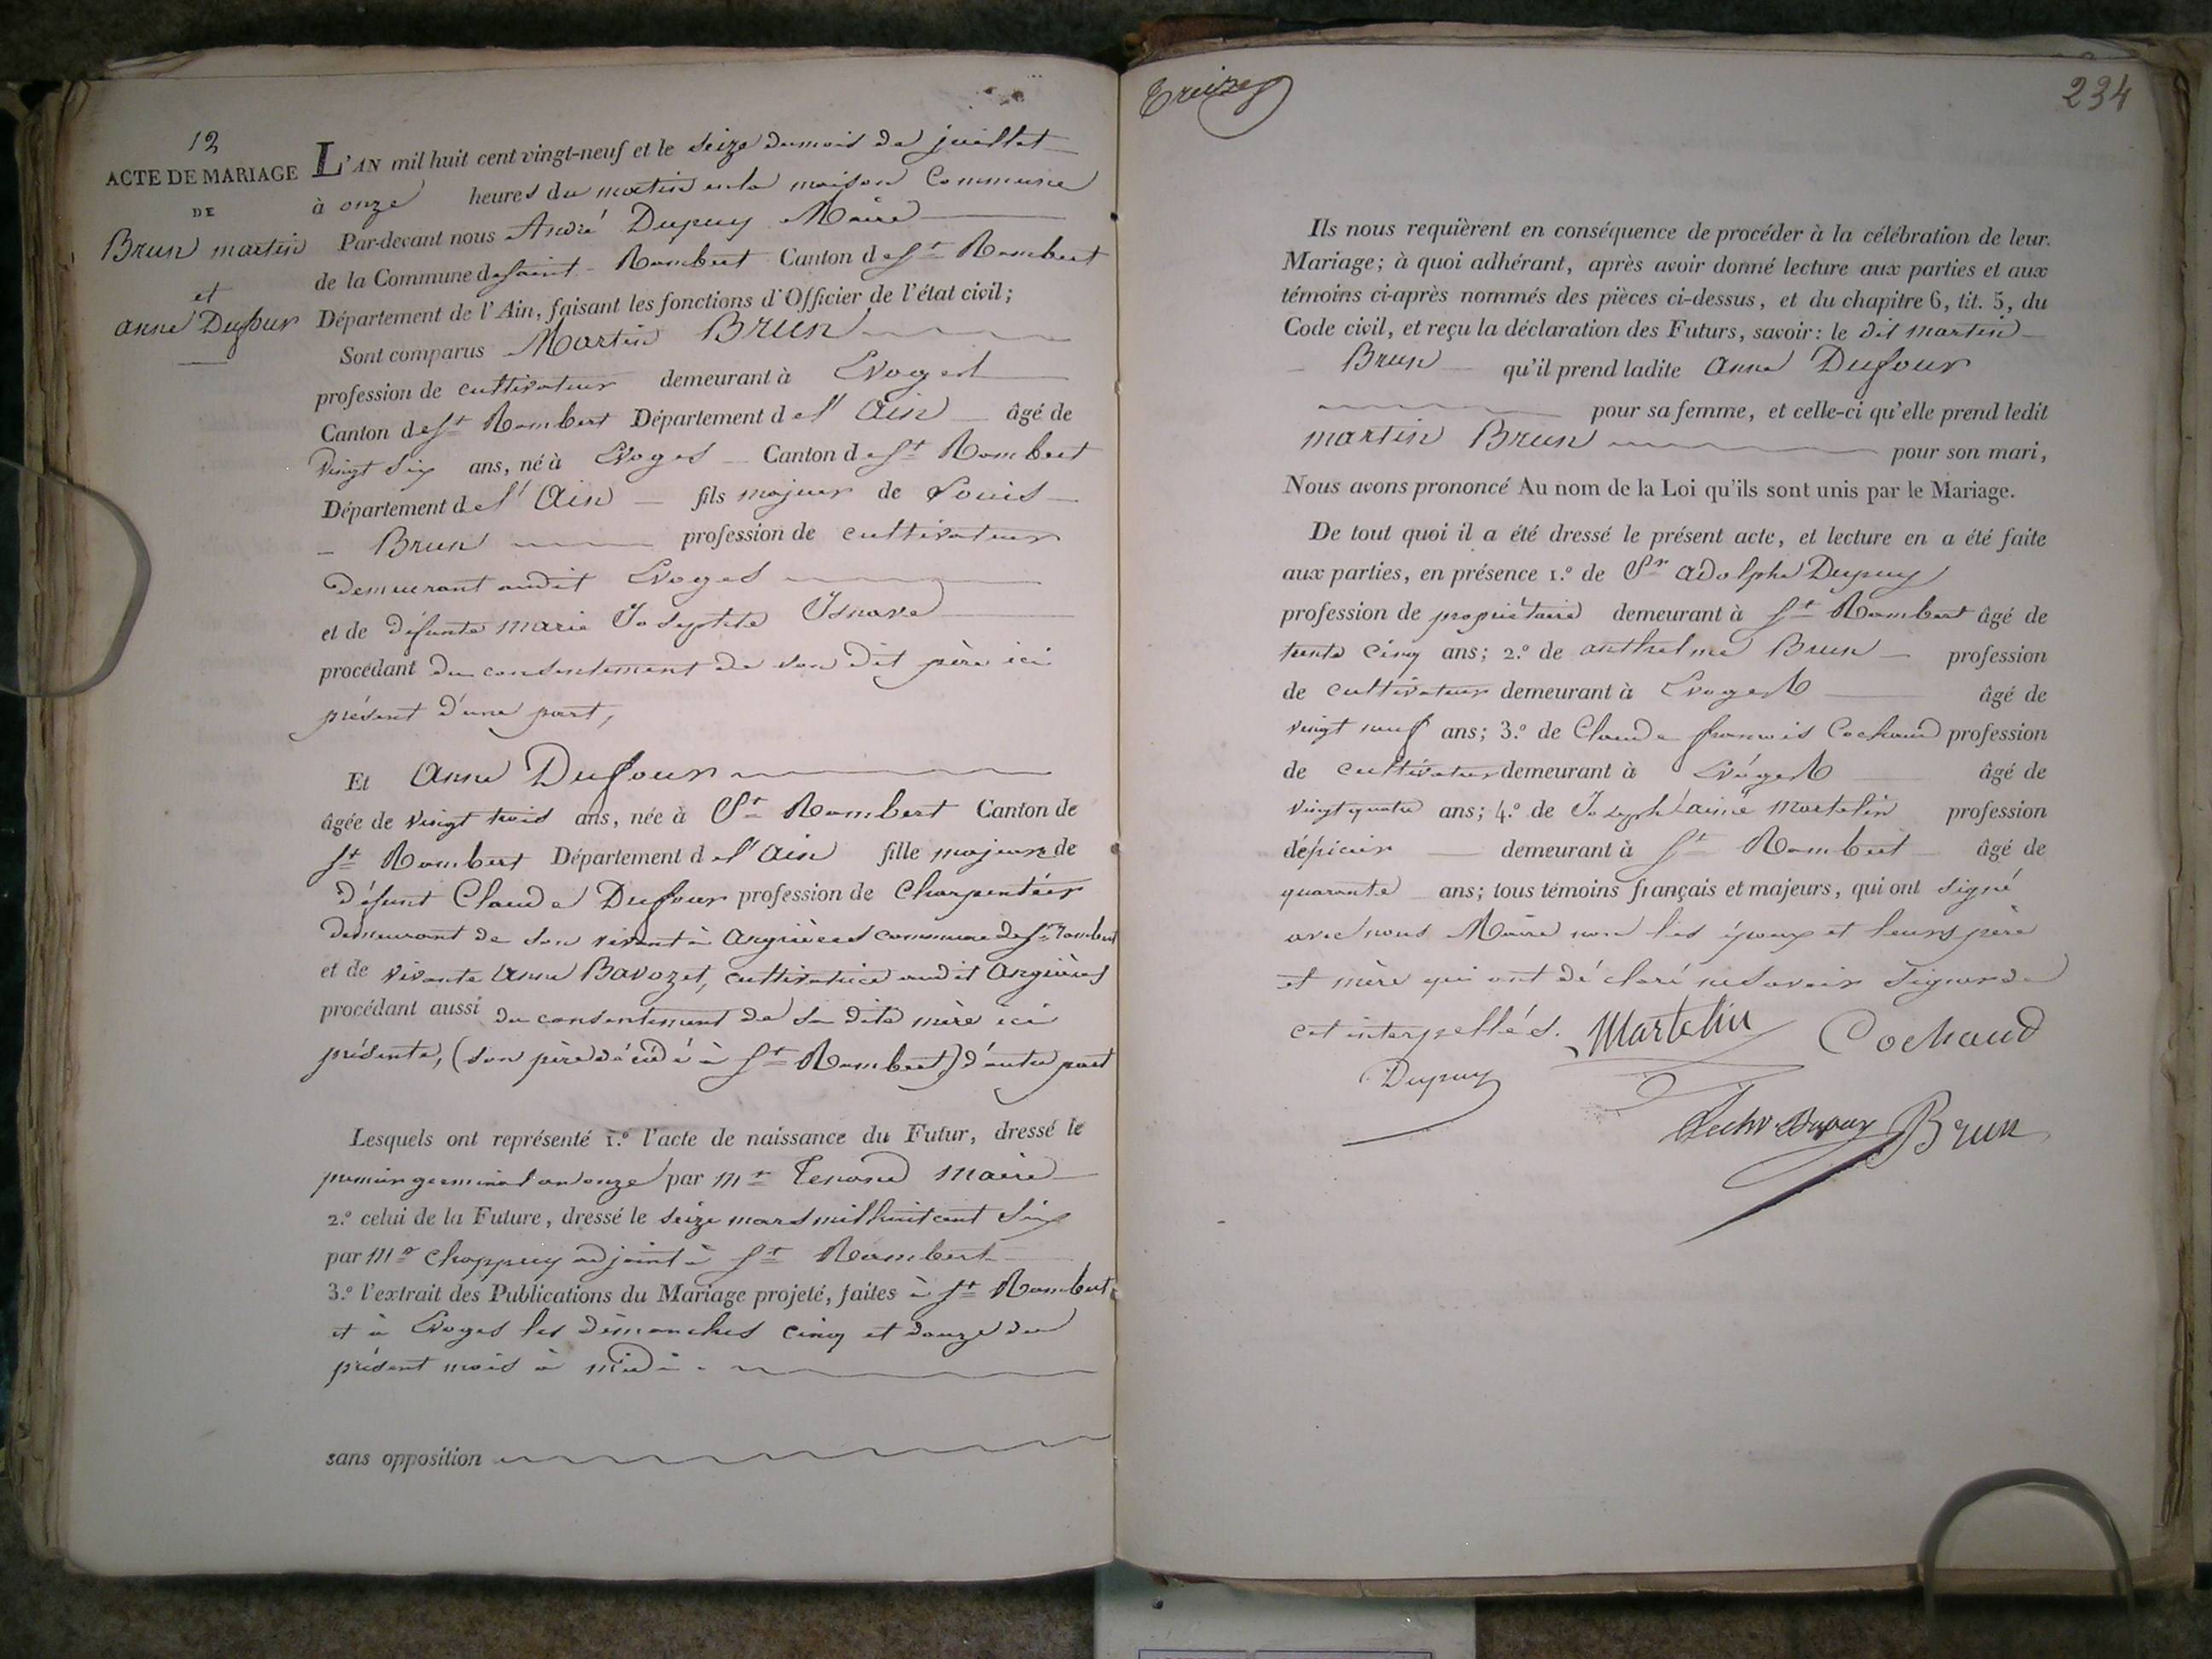 12
ACTE DE MARIAGE
DE
Brun martin
et
anne Dufour
L'AN mil huit cent vingt-neuf et le seize du mois de juillet
à onze heures du matin en la maison Commune
Par-devant nous André Dupuy Maire
de la Commune de saint-Rambert Canton de St Rambert
Département de l'Ain, faisant les fonctions d'Officier de l'état civil;
Sont comparus Martin Brun
profession de cultivateur demeurant à Evoges
Canton de St Rambert Département de l'Ain âgé de
vingt six ans, né à Evoges Canton de St Rambert
Département de l'Ain fils majeur de Louis
Brun profession de cultivateur
demeurant audit Evoges
et de défunte marie Josephte
procédant du consentement de son dit père ici
présent d'une part,
Et Anne Dufour
âgée de vingt trois ans, née à St Rambert Canton de
St Rambert Département de l'Ain fille majeure de
défunt Claude Dufour profession de Charpentier
demeurant de son vivant à Angrières commune de St Rambert
et de vivante Anne Bavozet, cultivatrice audit Angrières
procédant aussi du consentement de sa dite mère ici
présente, (son père décédé à St Rambert) d'autre part
Lesquels ont représenté 1.º l'acte de naissance du Futur, dressé le
premier germinal an onze par Mr Tenand Maire
2.º celui de la Future, dressé le seize mars mil huit cent six
par Mr Chappuy adjoint à St Rambert
3.º l'extrait des Publications du Mariage projeté, faites à St Rambert
et à Evoges les dimanches cinq et douze du
présent mois à midi.
sans opposition
treize
234
Ils nous requièrent en conséquence de procéder à la célébration de leur
Mariage; à quoi adhérant, après avoir donné lecture aux parties et aux
témoins ci-après nommés des pièces ci-dessus, et du chapitre 6, tit. 5, du
Code civil, et reçu la déclaration des Futurs, savoir: le dit martin
Brun qu'il prend ladite Anne Dufour
pour sa femme, et celle-ci qu'elle prend ledit
martin Brun pour son mari,
Nous avons prononcé Au nom de la Loi qu'ils sont unis par le Mariage.
De tout quoi il a été dressé le présent acte, et lecture en a été faite
aux parties, en présence 1.º de Sr Adolphe Dupuy
profession de propriétaire demeurant à St Rambert âgé de
trente cinq ans; 2.º de anthelme Brun profession
de cultivateur demeurant à Evoges âgé de
vingt neuf ans; 3.º de Claude françois Cochaud profession
de cultivateur demeurant à Evoges âgé de
vingt quatre ans; 4.º de Joseph l'ainé Martelin profession
d'épicier demeurant à St Rambert âgé de
quarante ans; tous témoins français et majeurs, qui ont signé
avec nous Maire non les époux et leurs père
et mère qui ont déclaré ne savoir signer de
cet interpellés. Martelin Cochaud
Dupuy
Dupuy Brun